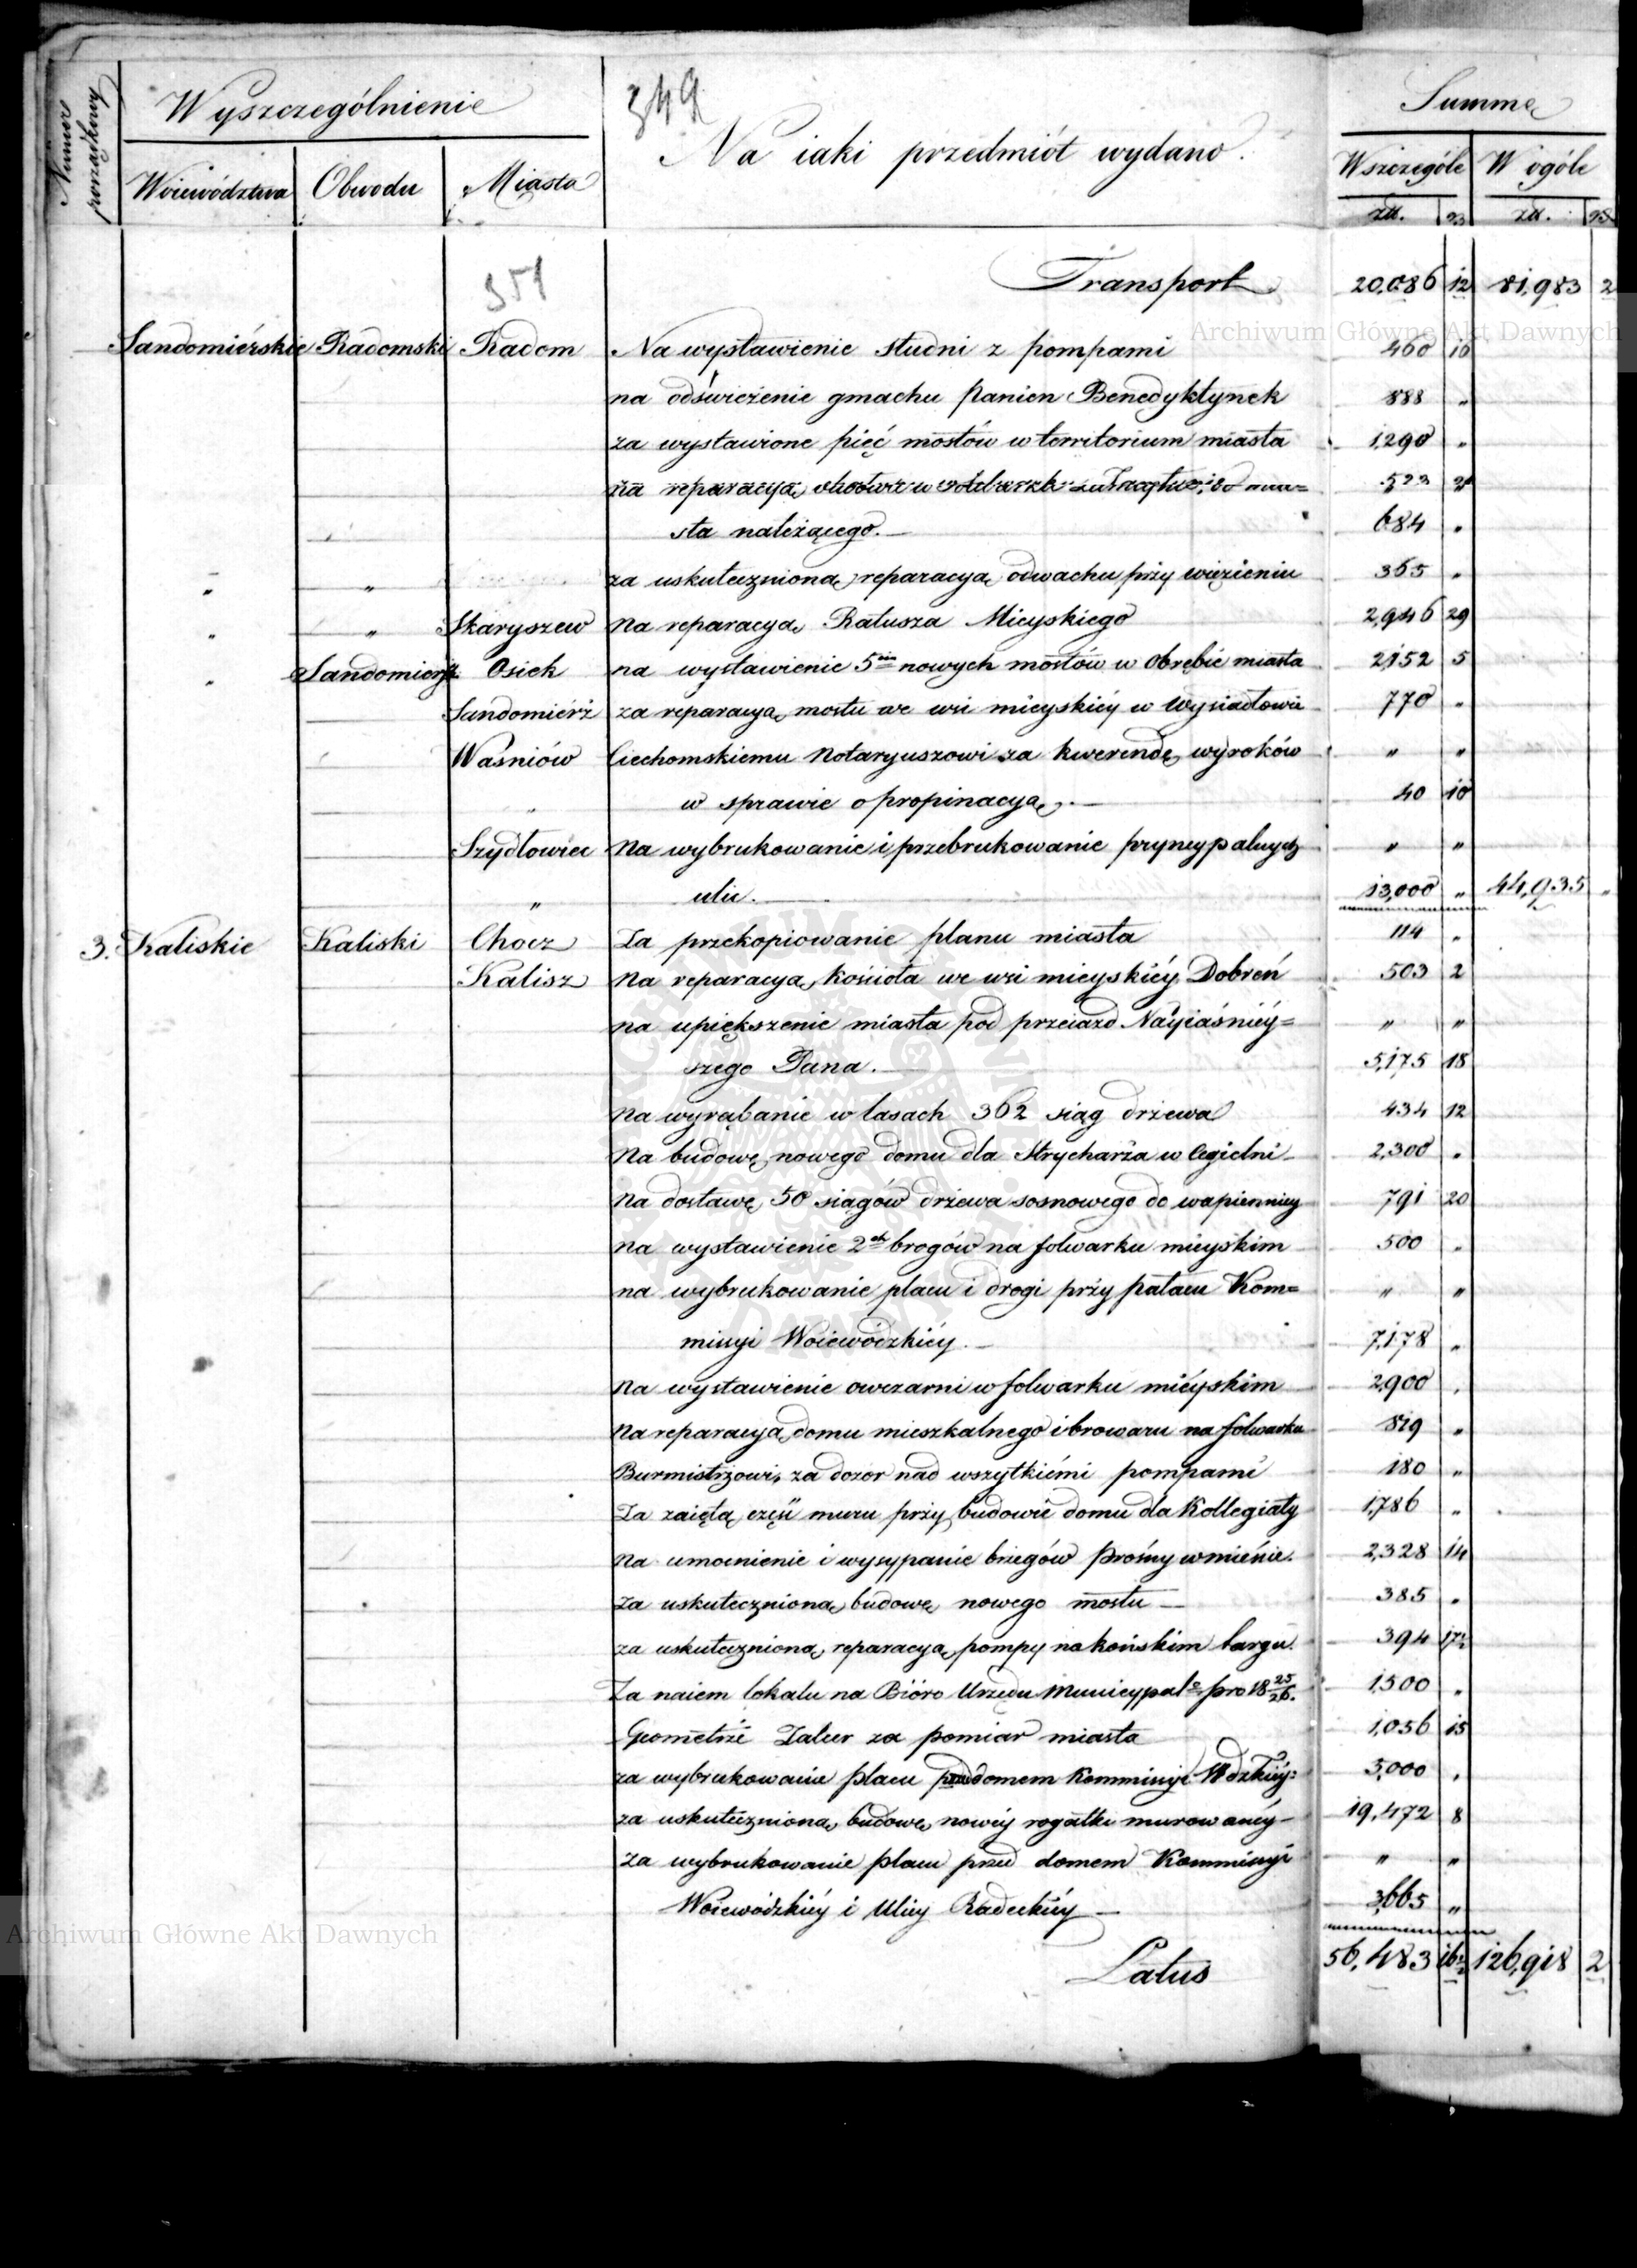 Numer porządkowy
Wyszczególnienie
349
Na iaki przedmiót wydano.
Summa
Woiewództwa Obwodu Miasta
Wszczególe W ogóle
zł. gr. zł. gr.
351
Transport 20,086 12 81,983 2
Archiwum Główne Akt Dawnych
Sandomiérskie Radomski Radom Na wystawienie studni z pompami 460 10
na odświeżenie gmachu Panien Benedyktynek 888 "
za wystawione pięć mostów w territorium miasta 1,290 "
na reparacyą 523
sta należącego. 684 "
" " za uskutecznioną reparacyą odwachu przy więzieniu 365 "
" " Skaryszew na reparacyą Ratusza Mieyskiego 2,946 29
" Sandomiersk. Osiek na wystawienie 5iu nowych mostów w obrębie miasta 2,152 5
Sandomiérz za reparacyą mostu we wsi mieyskiéy w Wysiadłowie 770 "
Waśniów Ciechomskiemu Notaryuszowi za kwerendę wyroków " "
" w sprawie o propinacyą. 40 10
Szydłowiec Na wybrukowanie i przebrukowanie pryncypalnych " "
" ulic. 13,000 " 44,935 "
3. Kaliskie Kaliski Chocz Za przekopiowanie planu miasta 114 "
Kalisz Na reparacyą kościoła we wsi mieyskiéy Dobreń 503 2
na upiększenie miasta pod przeiazd Nayiaśniéy= " "
szego Pana. 5,175 18
Na wyrąbanie w lasach 362 siąg drzewa 434 12
Na budowę nowego domu dla Strycharza w Cegielni 2,300 "
Na dostawę 50 siągów drzewa sosnowego do wapiennicy 791 20
na wystawienie 2ch brogów na folwarku mieyskim 500 "
na wybrukowanie placu i drogi przy pałacu Kom= " "
missyi Woiewódzkiéy. 7,178 "
Na wystawienie owczarni w folwarku mieyskim 2,900 "
Na reparacyą domu mieszkalnego i browaru na folwarku 819 "
Burmistrzowi za dozor nad wszytkiémi pompami 180 "
Za zaiętą część muru przy budowie domu dla Kollegiaty 1,786 "
Na umocnienie i wysypanie brzegów Prosny w mieście. 2,328 14
Za uskutecznioną budowę nowego mostu 385 "
za uskutecznioną reparacyą pompy na końskim targu. 394 17½
Za naiem lokalu na Bióro Urzędu Municypalo pro 18 25/26. 1,500 "
Geometrze Zaler za pomiar miasta 1,056 15
za wybrukowanie placu przed domem Kommissyi Wdzkiéy= 3,000 "
za uskutecznioną budowę nowéy rogatki murowanéy 19,472 8
Za wybrukowanie placu przed domem Kommissyi " "
Woiewódzkiéy i Ulicy Radeckiéy 3,665 "
Archiwum Główne Akt Dawnych
Latus 56,483 16½ 126,918 2